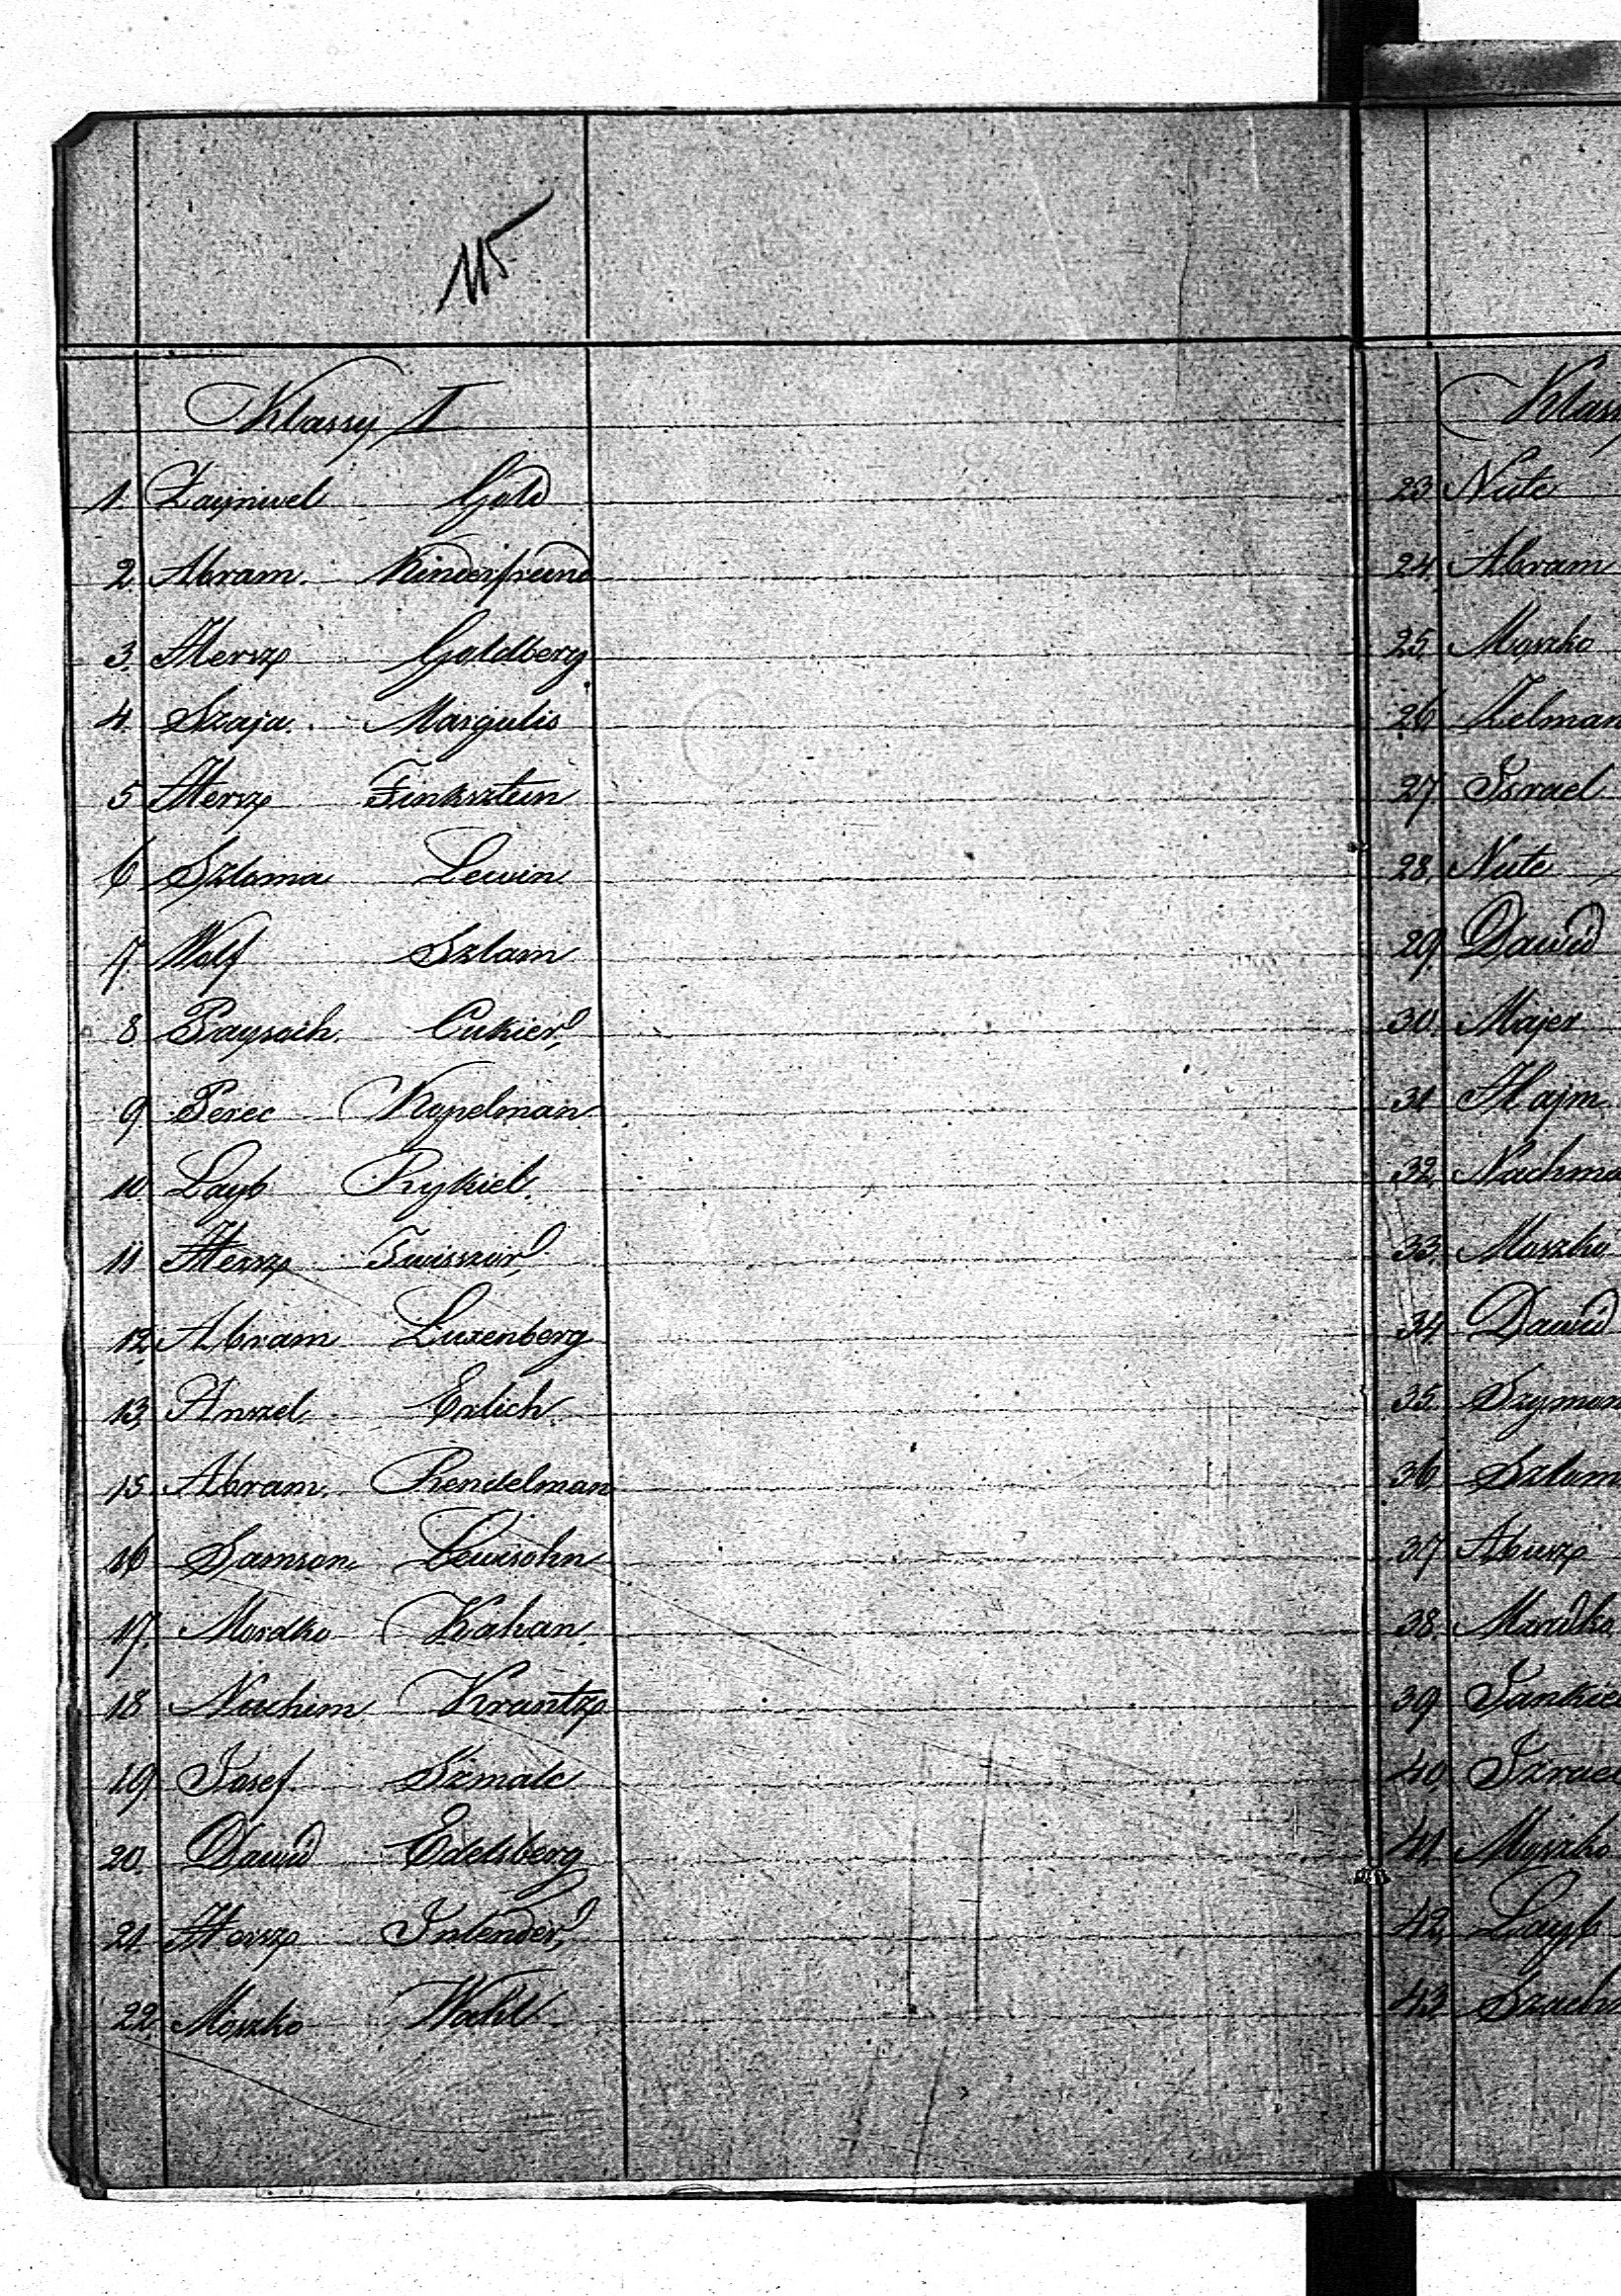 115
Klassy I
1. Zaynwel Gold
2. Abram Kinderfreund
3. Hersz Goldberg
4. Szaja Margulis
5 Hersz Finksztein
6 Szloma Lewin
7. Wolf Szlam
8 Paysach Cukier
9 Perec Kopelman
10 Layb Rykiel
11 Hersz
12. Abram Luxenberg
13. Anszel Erlich
15 Abram Rendelman
16 Samson Lewisohn
17. Mordko Kahan
18 Nochim Krantz
19. Josef Szmalc
20. Dawid Edelsberg
21. Hersz Inlender
22. Moszko Wahl
Klassy
23 Nute
24. Abram
25. Moszko
26 Zelman
27 Israel
28. Nute
29. Dawid
30. Majer
31 Hajm
32. Nachma
33. Moszko
34 Dawid
35. Szymon
36 Szlom
37 Abusz
38. Mordko
39 Jankie
40. Izrael
41. Moszko
42. Layb
43 Szach